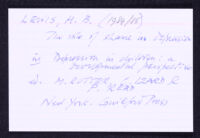 LEWIS, H. B. (1984/85)
The role of shame in depression
in Depression in children: a
developmental perspective
M. RUTTER, C. IZARD &
P. READ
New York: Guilford Press